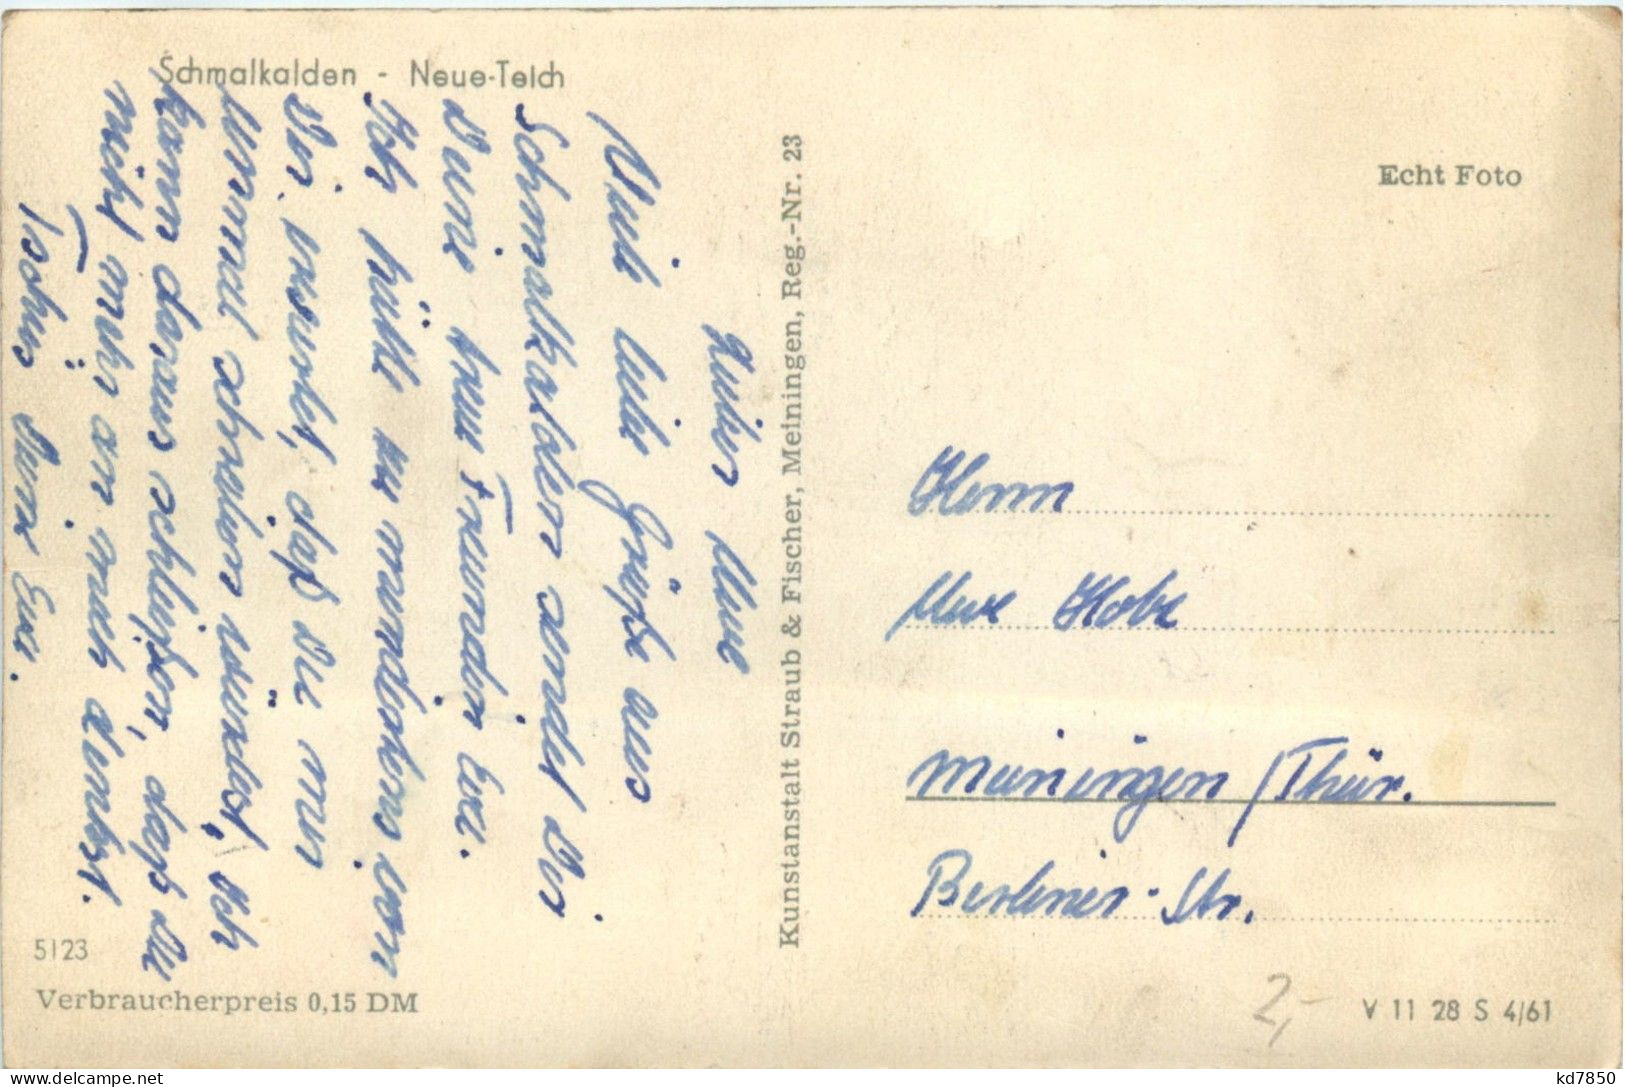 Schmalkalden - Neue-Teich
Lieber Uwe
Viele liebe Grüße aus
Schmalkalden sendet Dir
Deine treue Freundin Eva.
Ich hätte zu mindestens von
Dir. erwartet, daß Du mir
einmal schreiben würdest, Ich
kann daraus schließen, daß Du
nicht mehr an mich denkst.
Tschüs Deine Eva.
5123
Verbraucherpreis 0,15 DM
Kunstanstalt Straub & Fischer, Meiningen, Reg.-Nr. 23
Echt Foto
Herrn
Uwe
Meiningen /Thür.
Berliner-Str.
2,-
V 11 28 S 4/61
kd7850